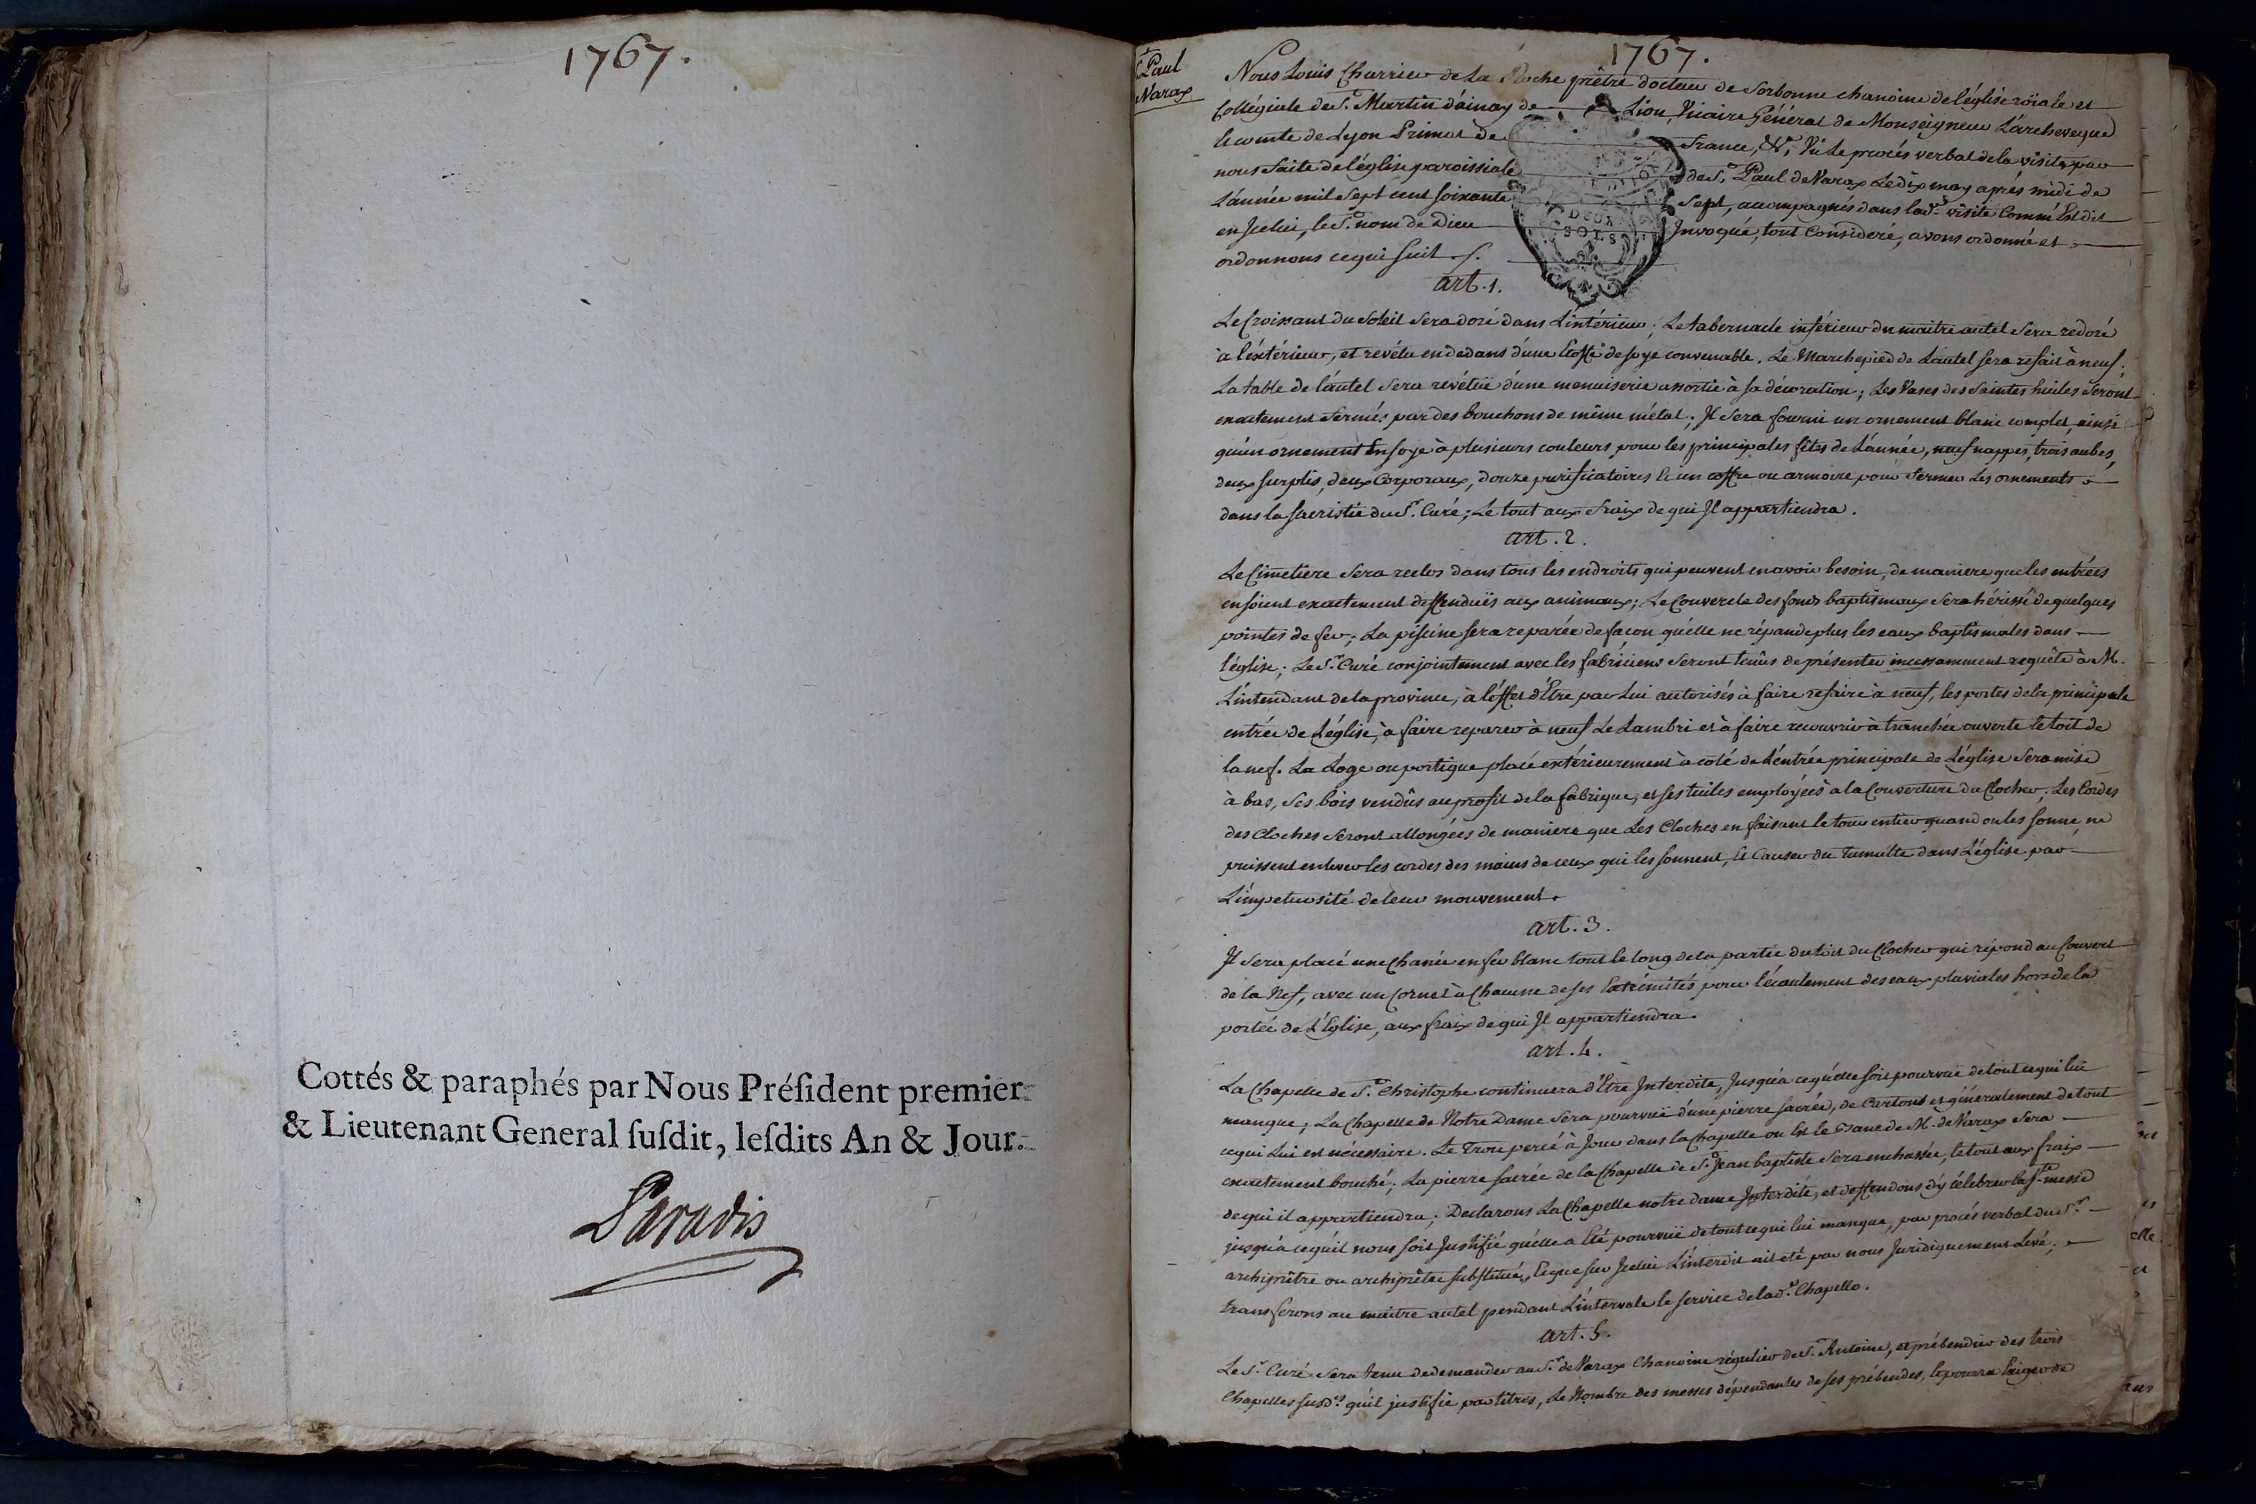 1767.
Cottés & paraphés par Nous Préſident premier
& Lieutenant General ſuſdit, leſdits An & Jour.
Paradis
1767.
St. Paul
Varax
Nous Louis Charrier de La Roche prêtre docteur de Sorbonne chanoine de l'église roïale et
Collégiale de St. Martin d'ainay de Lion, Vicaire Général de Monseigneur L'archeveque
le comte de Lyon Primat de france, &a, Vû le procés verbal de la visite par
nous faite de l'église paroissiale de St. Paul de Varax Le dix may aprés midi de
L'année mil sept cent soixante sept, accompagnés dans lade. visite Comm'Est dit
en Icelui, le St. nom de Dieu Invoqué, tout Consideré, avons ordonné et
ordonnons ce qui suit.
art. 1.
Le Croissant du Soleil sera doré dans L'intérieur; Le tabernacle inférieur du maitre autel sera redoré
à l'éxtérieur, et revétu en dedans d'une Etoffe de soye convenable. Le Marchepied de L'autel sera refait à neuf;
La table de l'autel sera revétuë d'une menuiserie assortie à sa décoration; Les Vases des Saintes huiles seront
exactement fermés par des bouchons de même métal; Il sera fourni un ornement blanc complet, ainsi
qu'un ornement En soye à plusieurs couleurs pour les principales fêtes de L'année, neuf nappes, trois aubes,
deux surplis, deux Corporaux, douze purificatoires Et un coffre ou armoire pour fermer Les ornements
dans la sacristie du Sr. Curé; Le tout aux fraix de qui Il appartiendra.
art. 2.
Le Cimetiere sera reclos dans tous les endroits qui peuvent en avoir besoin, de maniere que les entrées
en soient exactement deffenduës aux animaux; Le Couvercle des fonds baptismaux sera hérissé de quelques
pointes de fer; La piscine sera reparée de façon qu'elle ne répande plus les eaux baptismales dans
l'église; Le Sr. Curé conjointement avec les fabriciens seront tenûs de présenter incessamment requête à M.
L'intendant de la province, à l'éffet d'Etre par Lui autorisés à faire refaire à neuf, les portes de la principale
entrée de L'église, à faire reparer à neuf Le Lambri et à faire recouvrir à tranchée ouverte le toit de
la nef. La Loge ou portique placé extérieurement à coté de L'entrée principale de L'église sera mise
à bas, ses bois vendûs au profit de la fabrique, et ses tuiles employées à la Couverture du Clocher; Les Cordes
des Cloches seront allongées de maniere que Les Cloches en faisant le tour entier quand on les sonne, ne
puissent enlever les cordes des mains de ceux qui les sonnent, Et Causer du Tumulte dans L'église par
L'impetuosité de leur mouvement.
art. 3.
Il sera placé une Chanée en fer blanc tout le long de la partie du toit du Clocher qui répond au Couvert
de la Nef, avec un Cornet à Chacune de ses Extrémités pour l'écoulement des eaux pluviales hors de la
portée de L'Eglise, aux fraix de qui Il appartiendra.
art. 4.
La Chapelle de St. Christophe continuera d'Etre Interdite, Jusqu'à ce qu'elle soit pourvuë de tout ce qui lui
manque; La Chapelle de Notre Dame sera pourvuë d'une pierre sacrée, de Cartons et généralement de tout
ce qui Lui est nécessaire. Le Trou percé à Jour dans la Chapelle ou Est le Banc de M. de Varax sera
exactement bouché; La pierre sacrée de la Chapelle de St. Jean baptiste sera enchassée, le tout aux fraix
de qui il appartiendra; Declarons La Chapelle notre dame Interdite, et deffendons d'y célebrer la Ste. messe
jusqu'à ce qu'il nous soit Justifié qu'elle a Eté pourvuë de tout ce qui lui manque, par procés verbal du Sr.
archiprêtre ou archiprêtre substitué, Et que sur Icelui L'interdit ait été par nous Juridiquement Levé;
transferons au maitre autel pendant L'intervale le service de lade. Chapelle.
art. 5.
Le Sr. Curé sera tenu de demander au Sr. de Varax Chanoine régulier de St. Antoine, et prébendier des trois
Chapelles susdes. qu'il justifie par titres, Le Nombre des messes dépendantes de ses prébendes, Et pourra Exiger de